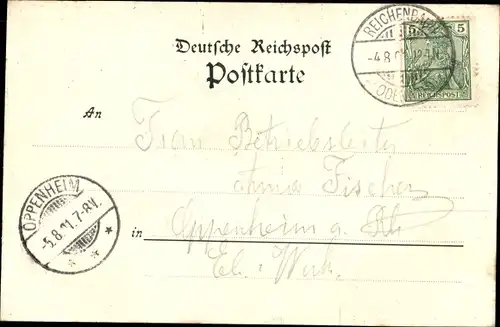 REICHENBACH
5 5
-4.8.01
ODENW
REICHSPOST
Deutsche Reichspost
Postkarte
An
Frau Betriebsleiter
Anna Fischer
OPPENHEIM
-5.8.01.7-8V.
in Oppenheim a. Rh
El. Werk.